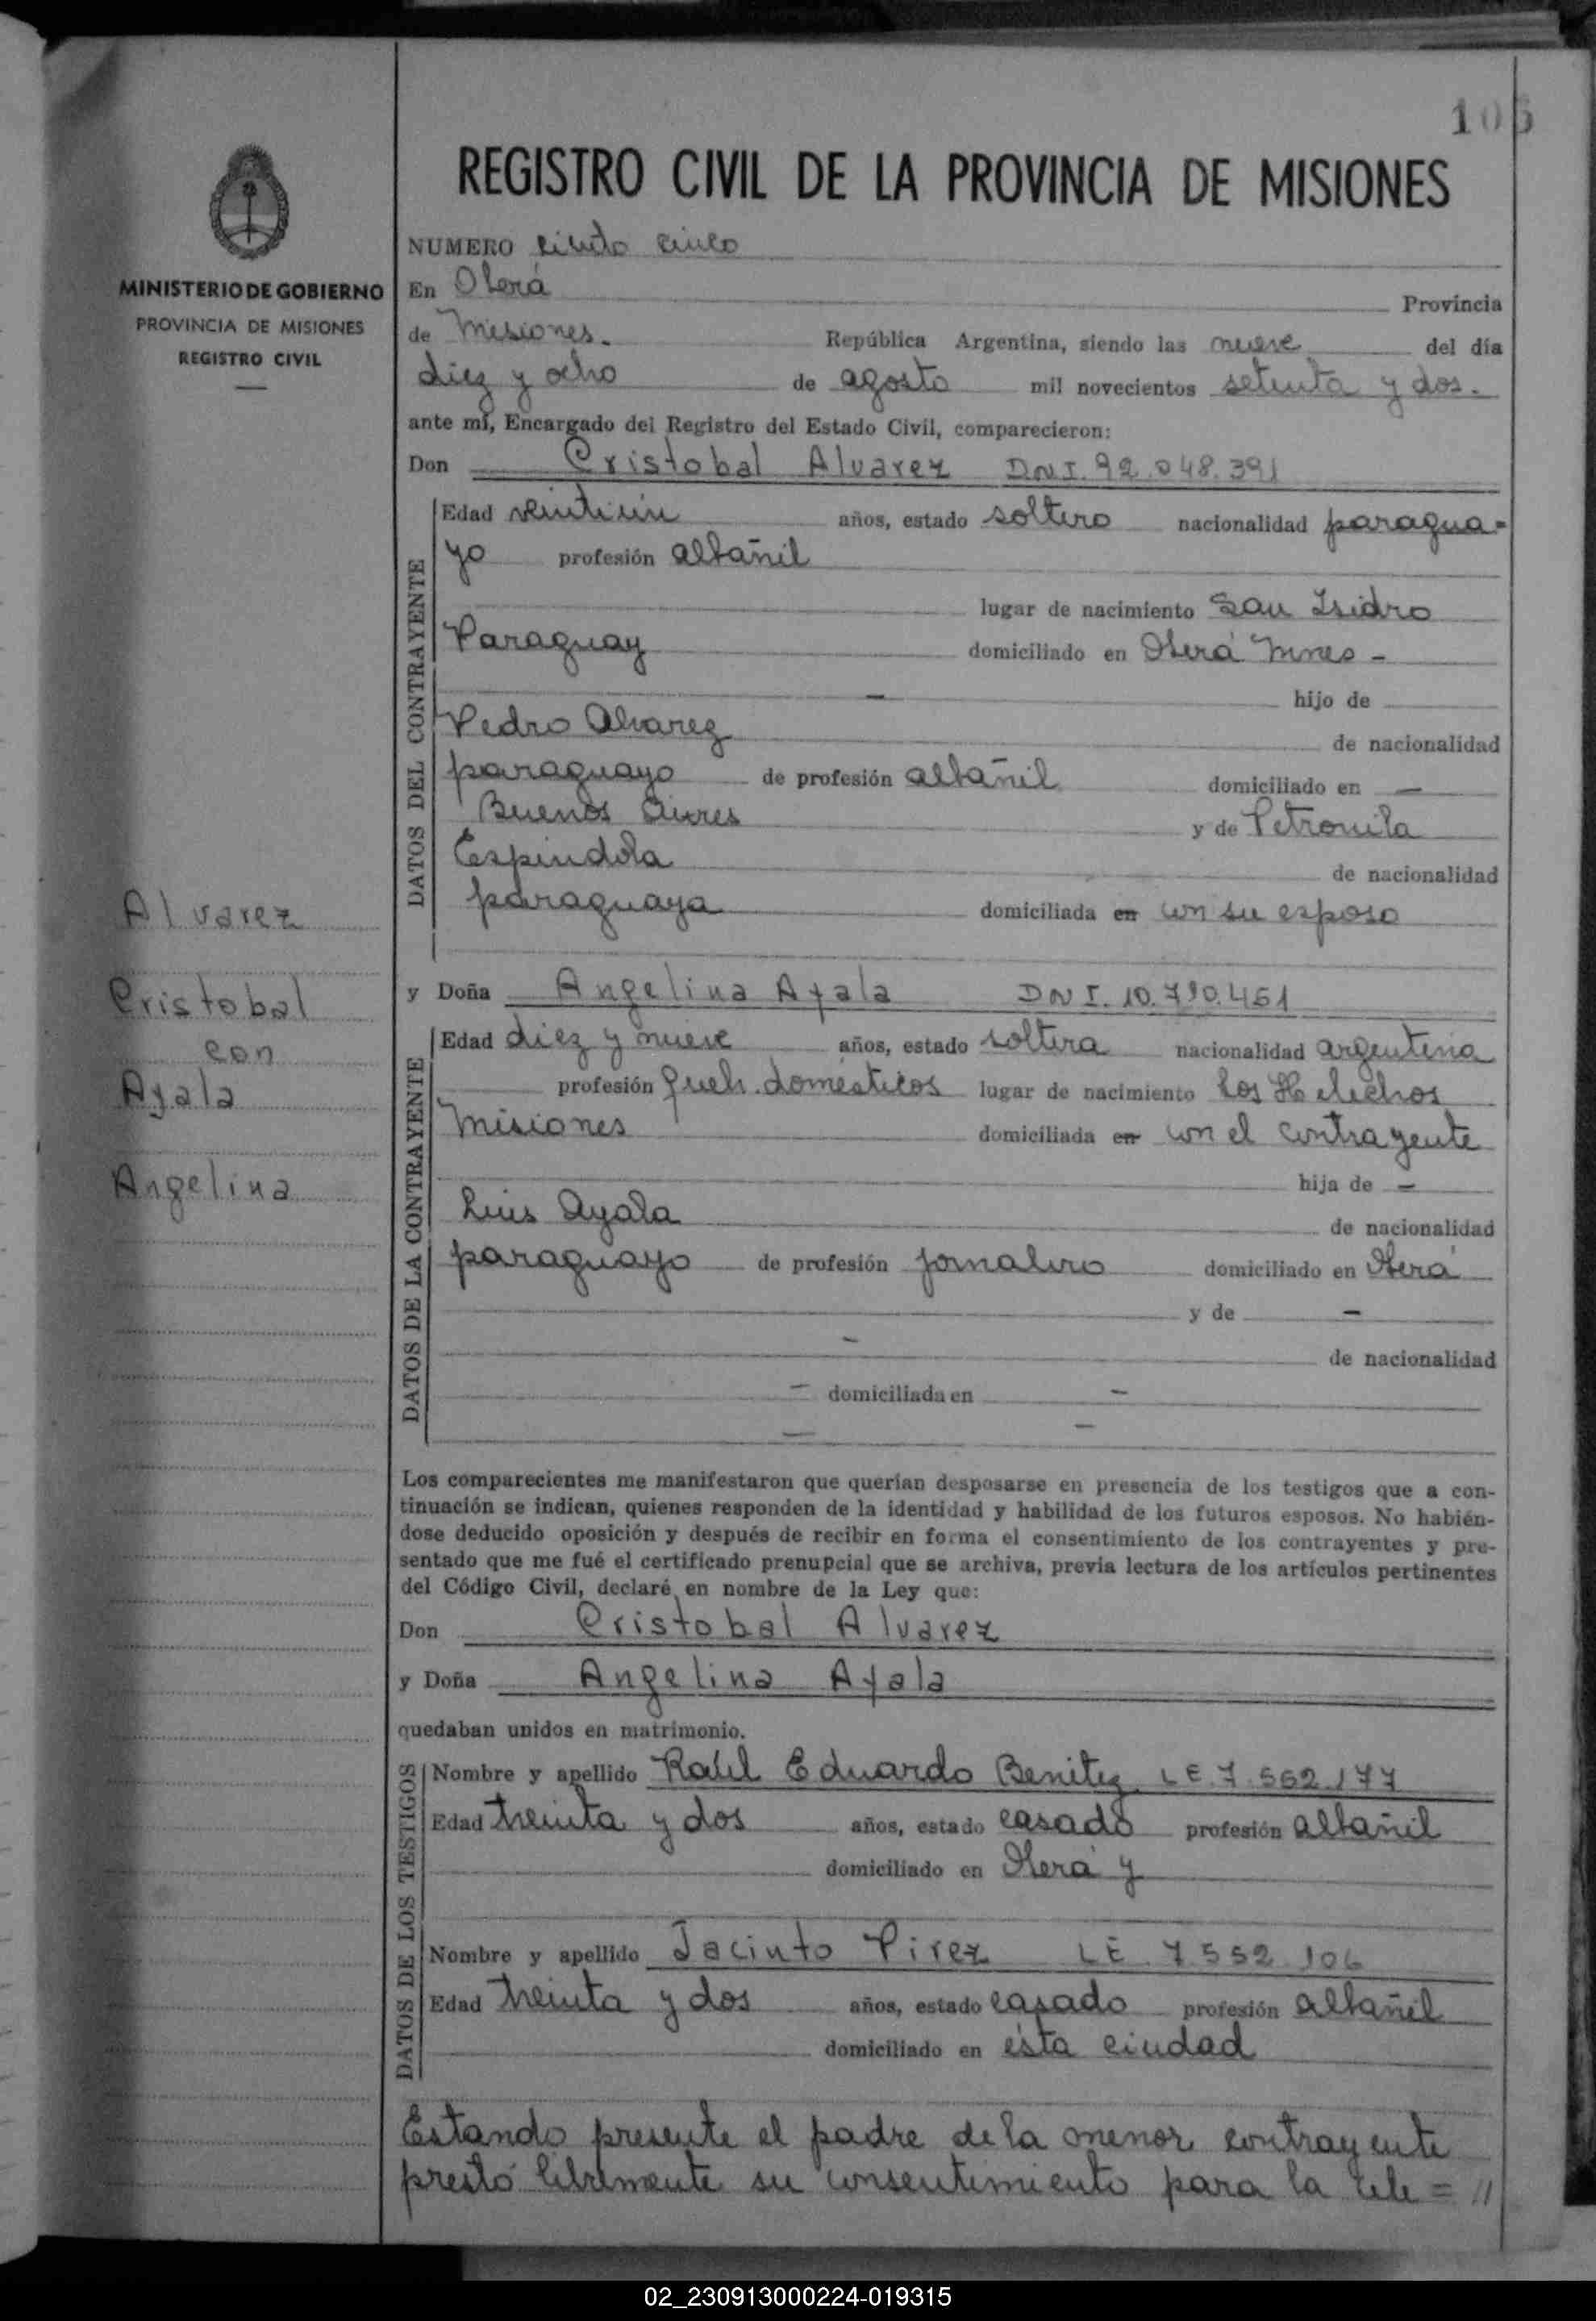 105
REGISTRO CIVIL DE LA PROVINCIA DE MISIONES
MINISTERIO DE GOBIERNO
PROVINCIA DE MISIONES
REGISTRO CIVIL
NUMERO ciento cinco
En Oberá Provincia
de Misiones. República Argentina, siendo las nueve del día
diez y ocho de agosto mil novecientos setenta y dos.
ante mí, Encargado del Registro del Estado Civil, comparecieron:
Don Cristobal Alvarez DNI. 92.048.391
DATOS DEL CONTRAYENTE
Edad veintiún años, estado soltero nacionalidad paragua=
yo profesión albañil
lugar de nacimiento San Isidro
Paraguay domiciliado en Oberá Mnes -
- hijo de
Pedro Alvarez de nacionalidad
paraguayo de profesión albañil domiciliado en —
Buenos Aires y de Petronila
Espindola de nacionalidad
paraguaya domiciliada en con su esposo
Alvarez
Cristobal
con
Ayala
Angelina
y Doña Angelina Ayala DNI. 10.790.451
DATOS DE LA CONTRAYENTE
Edad diez y nueve años, estado soltera nacionalidad argentina
profesión Queh. domésticos lugar de nacimiento Los Helechos
Misiones domiciliada en con el contrayente
hija de —
Luis Ayala de nacionalidad
paraguayo de profesión jornalero domiciliado en Oberá
y de —
— de nacionalidad
— domiciliada en —
— —
Los comparecientes me manifestaron que querían desposarse en presencia de los testigos que a con-
tinuación se indican, quienes responden de la identidad y habilidad de los futuros esposos. No habién-
dose deducido oposición y después de recibir en forma el consentimiento de los contrayentes y pre-
sentado que me fué el certificado prenupcial que se archiva, previa lectura de los artículos pertinentes
del Código Civil, declaré en nombre de la Ley que:
Don Cristobal Alvarez
y Doña Angelina Ayala
quedaban unidos en matrimonio.
DATOS DE LOS TESTIGOS
Nombre y apellido Raúl Eduardo Benitez LE. 7.562.177
Edad treinta y dos años, estado casado profesión albañil
domiciliado en Oberá y
Nombre y apellido Jacinto Pirez LE 7.552.106
Edad treinta y dos años, estado casado profesión albañil
domiciliado en ésta ciudad
Estando presente el padre de la menor contrayente
prestó libremente su consentimiento para la cele = //
02_230913000224-019315